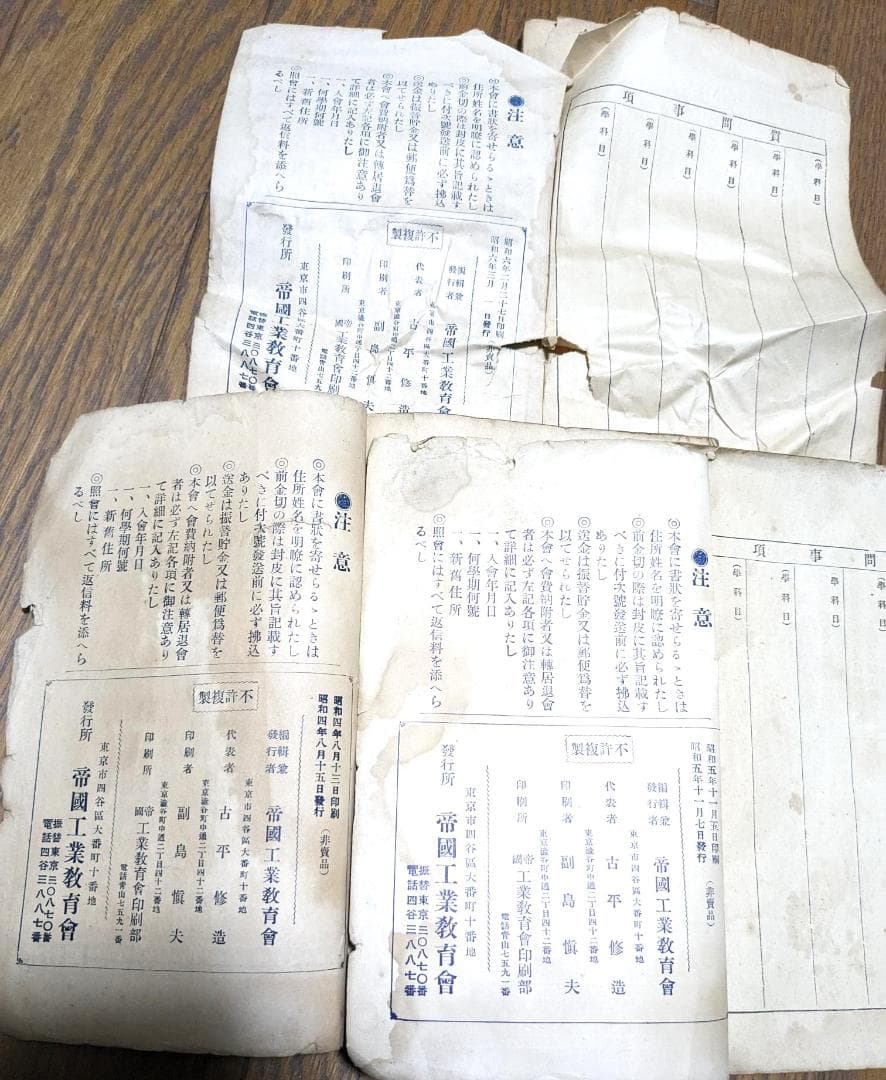 注意
◎本會に書狀を寄せらるゝときは
住所姓名を明瞭に認められたし
◎前金切の際は封皮に其旨記載す
べきに付次號發送前に必ず拂込
ありたし
◎送金は振替貯金又は郵便爲替を
以てせられたし
◎本會へ會費納附者又は轉居退會
者は必ず左記各項に御注意あり
て詳細に記入ありたし
一、入會年月日
一、何學期何號
一、新舊住所
◎照會にはすべて返信料を添へら
るべし
昭和六年二月二十七日印刷
昭和六年三月一日發行
(非賣品)
不許複製
編輯兼
發行者
帝國工業敎育會
東京市四谷區大番町十番地
代表者 古平修造
東京澁谷町中通二丁目四十二番地
印刷者 副島愼夫
東京澁谷町中通二丁目四十二番地
印刷所 帝國工業敎育會印刷
電話靑山七五九
東京市四谷區大番町十番地
發行所 帝國工業敎育會
振替東京三〇八七〇番
電話四谷三八八七番
質問事項
(學科目)
(學科目)
(學科目)
(學科目)
(學科目)
(學科目)
注意
◎本會に書狀を寄せらるゝときは
住所姓名を明瞭に認められたし
◎前金切の際は封皮に其旨記載す
べきに付次號發送前に必ず拂込
ありたし
◎送金は振替貯金又は郵便爲替を
以てせられたし
◎本會へ會費納附者又は轉居退會
者は必ず左記各項に御注意あり
て詳細に記入ありたし
一、入會年月日
一、何學期何號
一、新舊住所
◎照會にはすべて返信料を添へら
るべし
昭和四年八月十三日印刷
昭和四年八月十五日發行
(非賣品)
不許複製
編輯兼
發行者
帝國工業敎育會
東京市四谷區大番町十番地
代表者 古平修造
東京澁谷町中通二丁目四十二番地
印刷者 副島愼夫
東京澁谷町中通二丁目四十二番地
印刷所 帝國工業敎育會印刷部
電話靑山七五九一番
東京市四谷區大番町十番地
發行所 帝國工業敎育會
振替東京三〇八七〇番
電話四谷三八八七番
注意
◎本會に書狀を寄せらるゝときは
住所姓名を明瞭に認められたし
◎前金切の際は封皮に其旨記載す
べきに付次號發送前に必ず拂込
ありたし
◎送金は振替貯金又は郵便爲替を
以てせられたし
◎本會へ會費納附者又は轉居退會
者は必ず左記各項に御注意あり
て詳細に記入ありたし
一、入會年月日
一、何學期何號
一、新舊住所
◎照會にはすべて返信料を添へら
るべし
昭和五年十一月五日印刷
昭和五年十一月七日發行
(非賣品)
不許複製
編輯兼
發行者
帝國工業敎育會
東京市四谷區大番町十番地
代表者 古平修造
東京澁谷町中通二丁目四十二番地
印刷者 副島愼夫
東京澁谷町中通二丁目四十二番地
印刷所 帝國工業敎育會印刷部
電話靑山七五九一番
東京市四谷區大番町十番地
發行所 帝國工業敎育會
振替東京三〇八七〇番
電話四谷三八八七番
問事項
(學科目)
(學科目)
(學科目)